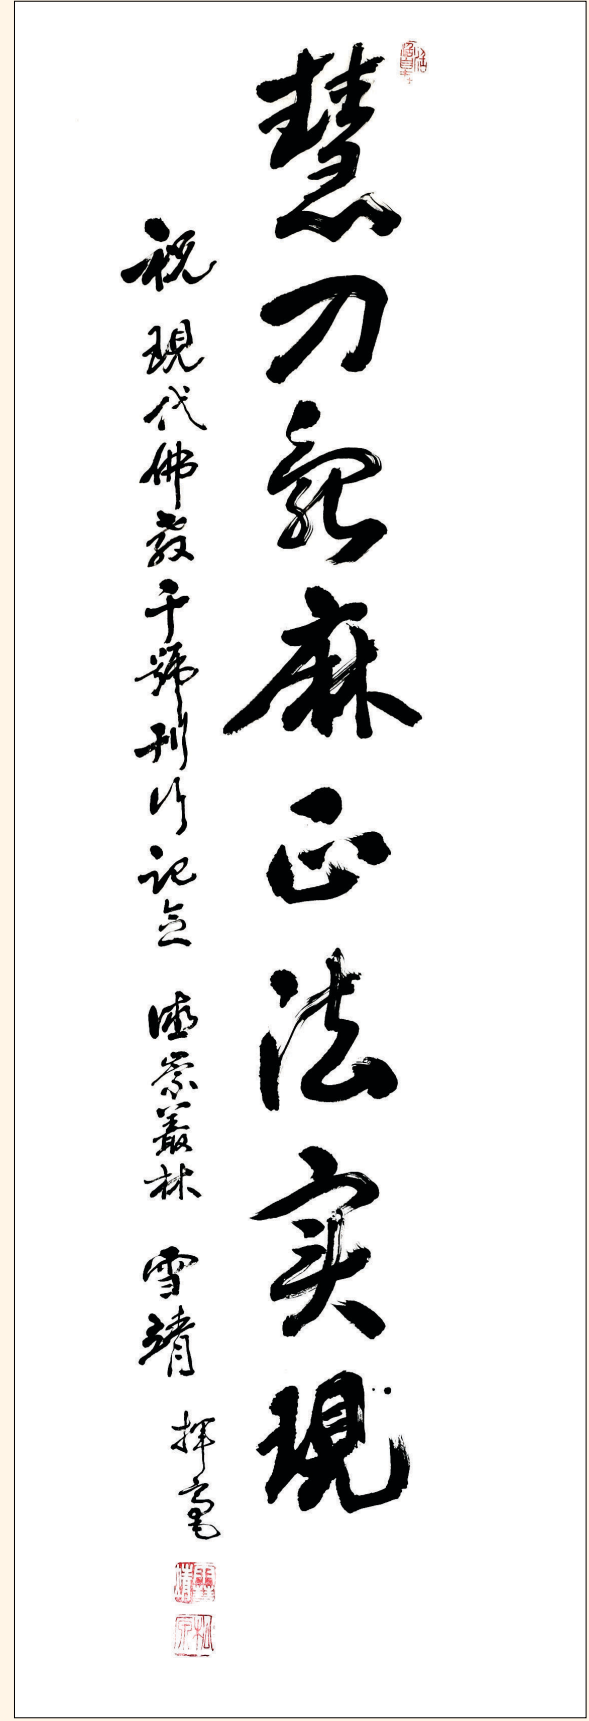 慧刀亂麻正法実現
祝 現代佛教千號刊行記念 德崇叢林 雪靖 揮毫
雪靖